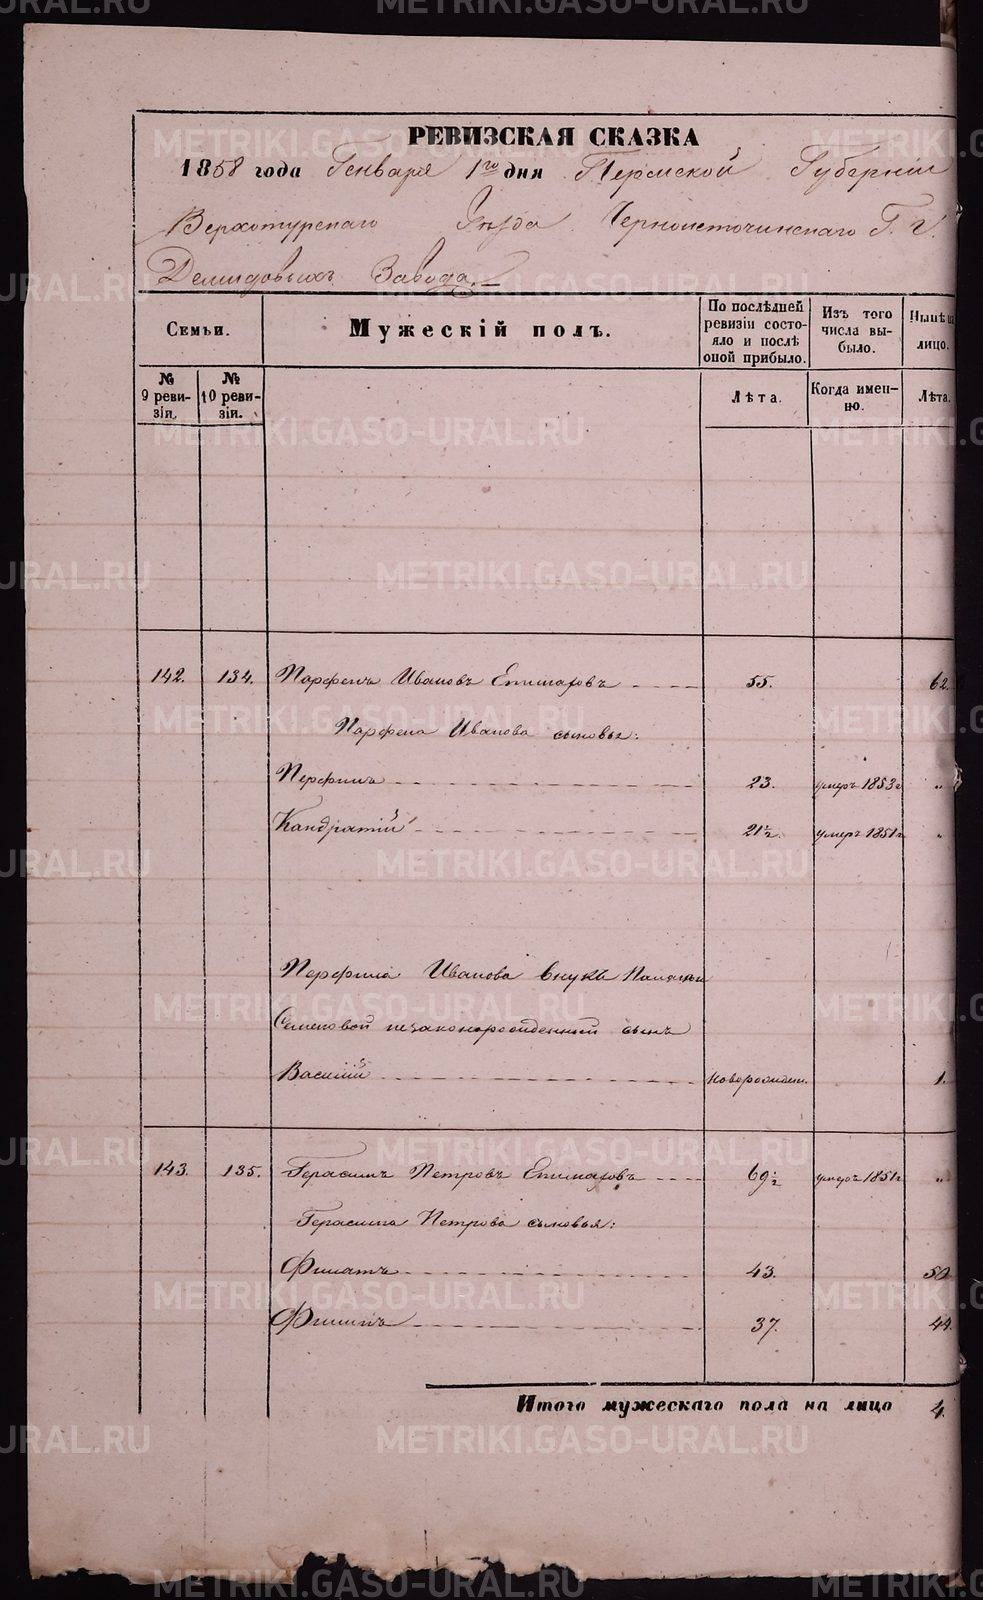 РЕВИЗСКАЯ СКАЗКА
1858 года Генваря 1го дня Пермской Губерніи
Верхотурскаго Уѣзда Черноисточинскаго Г. г.
Демидовыхъ Завода.
Семьи.
Мужескій полъ.
По послѣдней ревизіи состояло и послѣ оной прибыло.
Изъ того числа выбыло.
Нынѣ
лицо.
№ 9 ревизіи.
№ 10 ревизіи.
Лѣта.
Когда именно.
Лѣта.
142. 134. Парфенъ Ивановъ Епишаровъ 55. 62.
Парфена Иванова сыновья:
Перфилъ 23. умеръ 1853 г „
Кандратій 21½. умеръ 1851 г „
Перфила Иванова внукъ
незаконорожденный сынъ
Василій новорожден. 1.
143. 135. Герасимъ Петровъ Епишаровъ 69½ умеръ 1851 г „
Герасима Петрова сыновья:
Филатъ 43. 50
Филипъ 37. 44.
Итого мужескаго пола на лицо 4.
METRIKI.GASO-URAL.RU